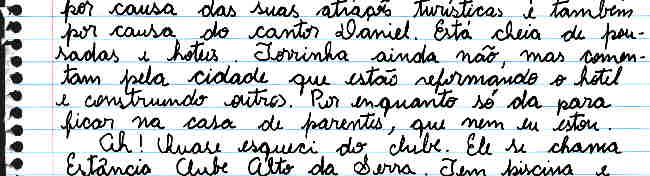 por causa das suas atrações turísticas e também
por causa do cantor Daniel. Está cheia de pou-
sadas e hotéis. Torrinha ainda não, mas comen-
tam pela cidade que estão reformando o hotel
e construindo outros. Por enquanto só da para
ficar na casa de parentes, que nem eu estou.
Ah! Quase esqueci do clube. Ele se chama
Estância Clube Alto da Serra. Tem piscina e